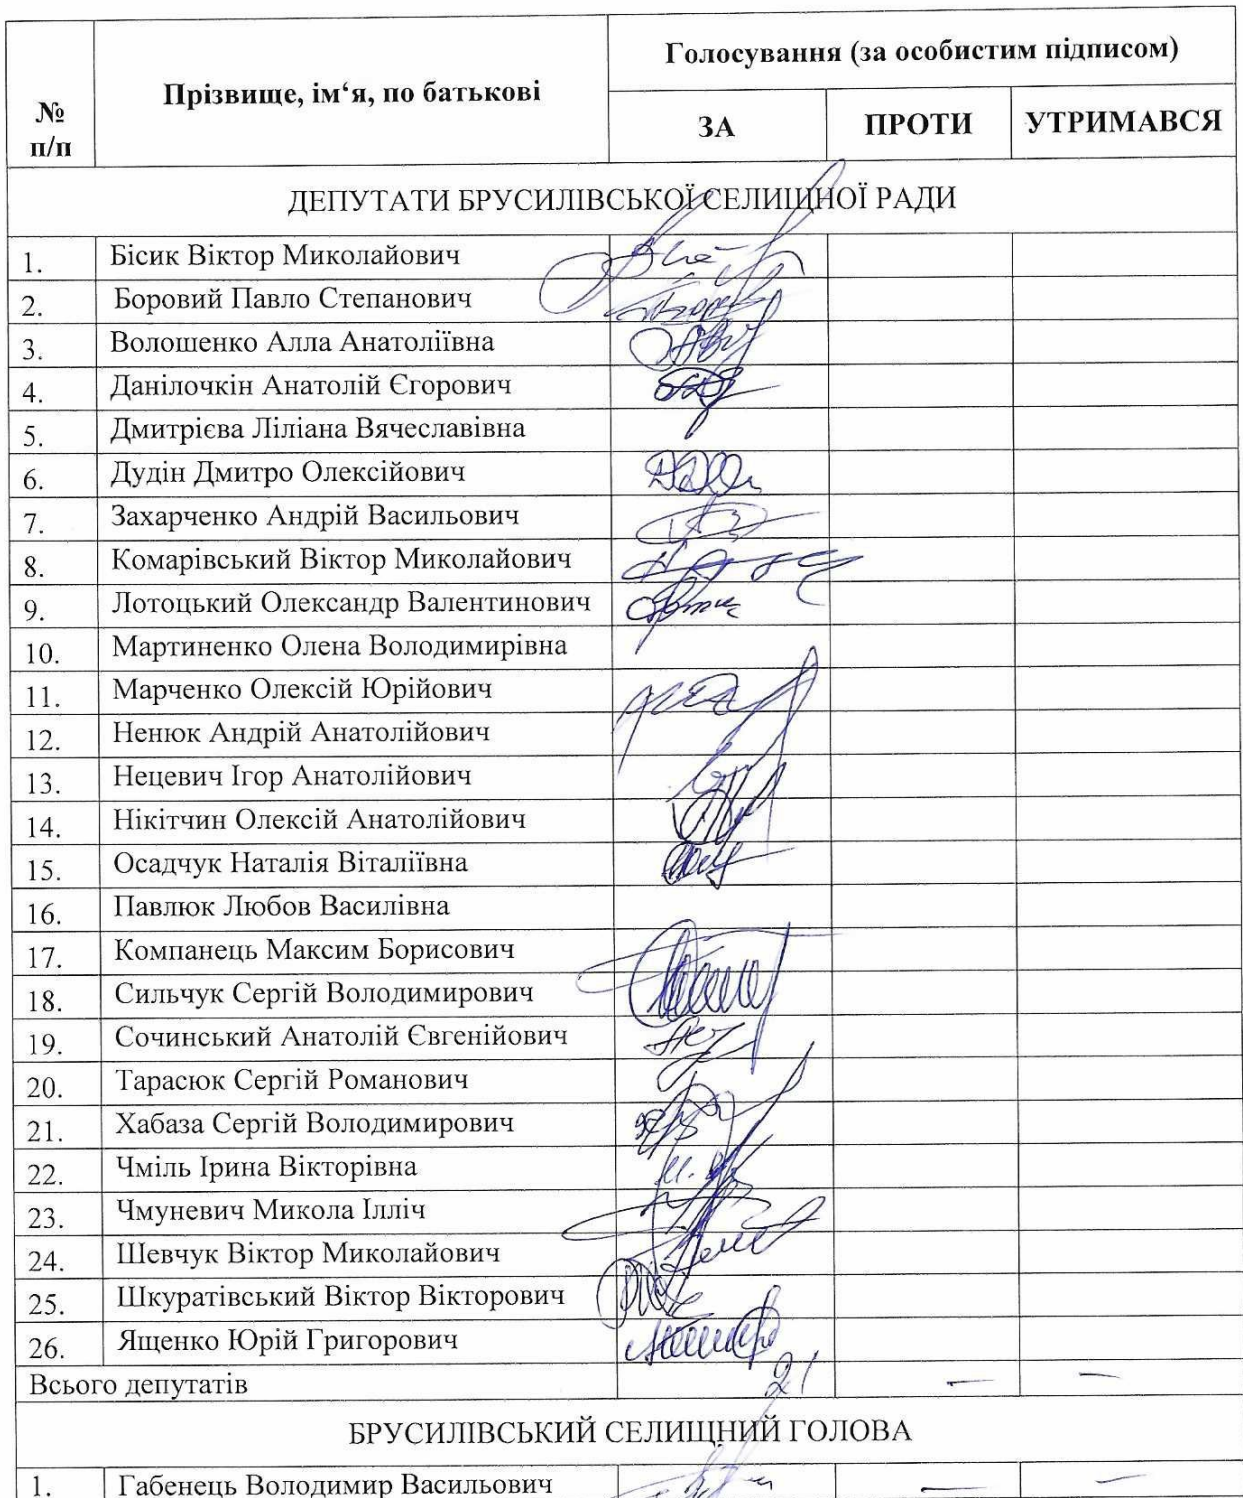 №
п/п
Прізвище, ім‘я, по батькові
Голосування (за особистим підписом)
ЗА
ПРОТИ
УТРИМАВСЯ
ДЕПУТАТИ БРУСИЛІВСЬКОЇ СЕЛИЩНОЇ РАДИ
1. Бісик Віктор Миколайович
2. Боровий Павло Степанович
3. Волошенко Алла Анатоліївна
4. Данілочкін Анатолій Єгорович
5. Дмитрієва Ліліана Вячеславівна
6. Дудін Дмитро Олексійович
7. Захарченко Андрій Васильович
8. Комарівський Віктор Миколайович
9. Лотоцький Олександр Валентинович
10. Мартиненко Олена Володимирівна
11. Марченко Олексій Юрійович
12. Ненюк Андрій Анатолійович
13. Нецевич Ігор Анатолійович
14. Нікітчин Олексій Анатолійович
15. Осадчук Наталія Віталіївна
16. Павлюк Любов Василівна
17. Компанець Максим Борисович
18. Сильчук Сергій Володимирович
19. Сочинський Анатолій Євгенійович
20. Тарасюк Сергій Романович
21. Хабаза Сергій Володимирович
22. Чміль Ірина Вікторівна
23. Чмуневич Микола Ілліч
24. Шевчук Віктор Миколайович
25. Шкуратівський Віктор Вікторович
26. Ященко Юрій Григорович
Всього депутатів 21 — —
БРУСИЛІВСЬКИЙ СЕЛИЩНИЙ ГОЛОВА
1. Габенець Володимир Васильович — —